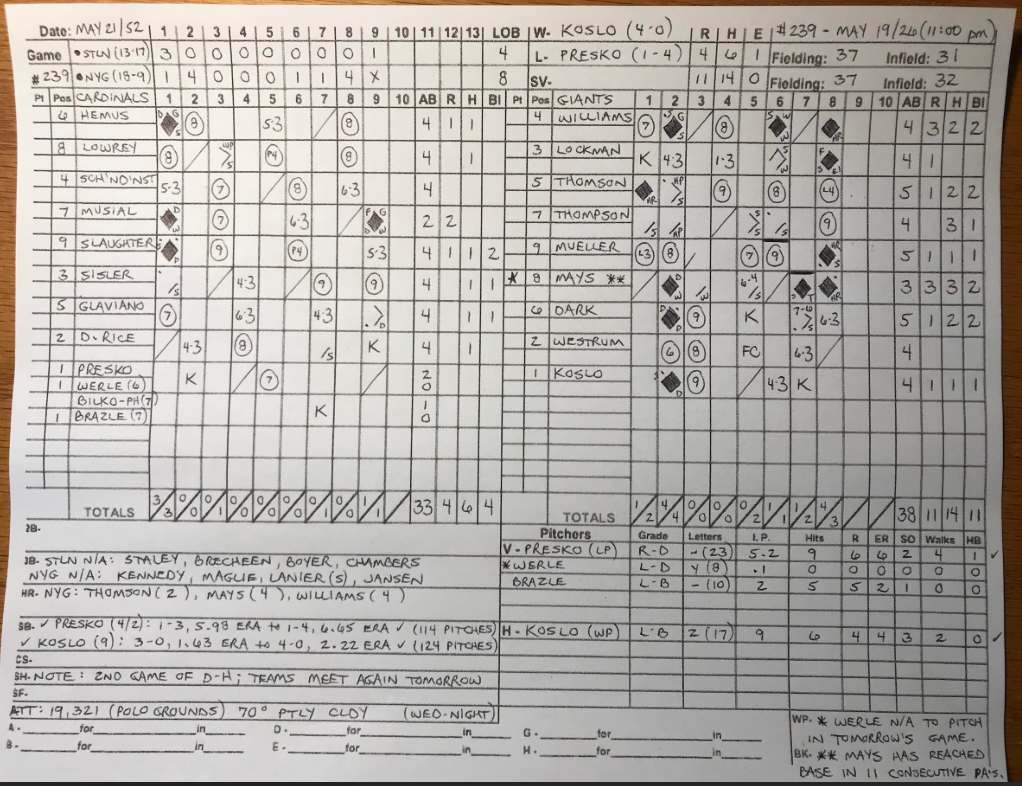 Date: MAY 21/52 1 2 3 4 5 6 7 8 9 10 11 12 13 LOB W- KOSLO (4-0) R H E #239 - MAY 19/26 (11:00 pm)
Game •STLN (13-17) 3 0 0 0 0 0 0 0 1 4 L- PRESKO (1-4) 4 6 1 Fielding: 37 Infield: 31
#239 •NYG (18-9) 1 4 0 0 0 1 1 4 X 8 SV- 11 14 0 Fielding: 37 Infield: 32
Pt Pos CARDINALS 1 2 3 4 5 6 7 8 9 10 AB R H BI Pt Pos GIANTS 1 2 3 4 5 6 7 8 9 10 AB R H BI
6 HEMUS 8 5-3 8 4 1 1 4 WILLIAMS 7 8 HR 4 3 2 2
8 LOWREY 8 WP S P4 8 4 1 3 LOCKMAN K 4-3 1-3 4 1
4 SCH'ND'NST 5-3 7 6 6-3 4 5 THOMSON HR HP S 9 8 L4 5 1 2 2
7 MUSIAL D W 7 6-3 2 2 7 THOMPSON /S /HP S S /S 9 4 3 1
9 SLAUGHTER 9 P4 5-3 4 1 1 2 9 MUELLER L3 8 7 9 HR S 5 1 1 1
3 SISLER /S 4-3 9 9 4 1 1 * 8 MAYS ** D W /W 6-4 /S HR 3 3 3 2
5 GLAVIANO 7 6-3 4-3 /D 4 1 1 6 DARK D D 9 K 7-6 /S 6-3 5 1 2 2
2 D. RICE 4-3 8 /S K 4 1 2 WESTRUM 6 8 FC 6-3 4
1 PRESKO K 7 2 1 KOSLO S D 9 4-3 K 4 1 1 1
1 WERLE (6) 0
BILKO-PH (7) K 1
1 BRAZLE (7) 0
TOTALS 3/3 0/0 0/1 0/0 0/0 0/0 0/1 0/0 1/1 33 4 6 4 TOTALS 1/2 4/4 0/0 0/0 0/2 1/1 1/2 4/3 38 11 14 11
2B-
Pitchers Grade Letters I.P. Hits R ER SO Walks HB
V - PRESKO (LP) R-D - (23) 5.2 9 6 6 2 4 1 ✓
3B- STLN N/A: STALEY, BRECHEEN, BOYER, CHAMBERS
*WERLE L-D Y (8) .1 0 0 0 0 0 0
NYG N/A: KENNEDY, MAGLIE, LANIER (S), JANSEN
BRAZLE L-B - (10) 2 5 5 2 1 0 0
HR- NYG: THOMSON (2), MAYS (4), WILLIAMS (4)
SB- ✓ PRESKO (4/2): 1-3, 5.98 ERA to 1-4, 6.65 ERA ✓ (114 PITCHES)
H - KOSLO (WP) L-B Z (17) 9 6 4 4 3 2 0 ✓
✓ KOSLO (9): 3-0, 1.63 ERA to 4-0, 2.22 ERA ✓ (124 PITCHES)
CS-
SH- NOTE: 2ND GAME OF D-H; TEAMS MEET AGAIN TOMORROW
SF-
ATT: 19,321 (POLO GROUNDS) 70° PTLY CLDY (WED-NIGHT)
A - for in D - for in G - for in
B - for in E - for in H - for in
WP- * WERLE N/A TO PITCH
IN TOMORROW'S GAME.
BK- ** MAYS HAS REACHED
BASE IN 11 CONSECUTIVE PA'S.